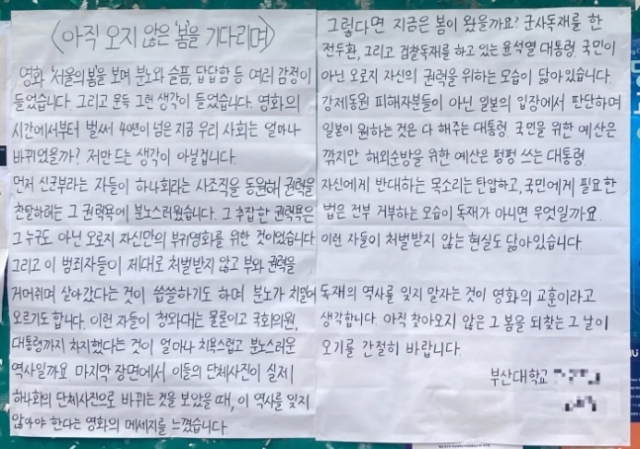 〈아직 오지 않은 '봄'을 기다리며〉
영화 '서울의봄'을 보며 분노와 슬픔, 답답함 등 여러 감정이
들었습니다. 그리고 문득 그런 생각이 들었습니다. 영화의
시간에서부터 벌써 40년이 넘은 지금 우리 사회는 얼마나
바뀌었을까? 저만 드는 생각이 아닐겁니다.
먼저 신군부라는 자들이 하나회라는 사조직을 동원해 권력을
찬탈하려는 그 권력욕에 분노스러웠습니다. 그 추잡한 권력욕은
그 누구도 아닌 오로지 자신만의 부귀영화를 위한 것이었습니다
그리고 이 범죄자들이 제대로 처벌받지 않고 부와 권력을
거머쥐며 살아갔다는 것이 씁쓸하기도 하며 분노가 치밀어
오르기도 합니다. 이런 자들이 청와대는 물론이고 국회의원,
대통령까지 차지했다는 것이 얼마나 치욕스럽고 분노스러운
역사일까요 마지막 장면에서 이들의 단체사진이 실제
하나회의 단체사진으로 바뀌는 것을 보았을 때, 이 역사를 잊지
않아야 한다는 영화의 메세지를 느꼈습니다.
그렇다면 지금은 봄이 왔을까요? 군사독재를 한
전두환, 그리고 검찰독재를 하고 있는 윤석열 대통령. 국민이
아닌 오로지 자신의 권력을 위하는 모습이 닮아있습니다.
강제동원 피해자분들이 아닌 일본의 입장에서 판단하며
일본이 원하는 것은 다 해주는 대통령. 국민을 위한 예산은
깎지만 해외순방을 위한 예산은 펑펑 쓰는 대통령
자신에게 반대하는 목소리는 탄압하고, 국민에게 필요한
법은 전부 거부하는 모습이 독재가 아니면 무엇일까요
이런 자들이 처벌받지 않는 현실도 닮아있습니다
독재의 역사를 잊지 말자는 것이 영화의 교훈이라고
생각합니다. 아직 찾아오지 않은 그 봄을 되찾는 그 날이
오기를 간절히 바랍니다.
부산대학교